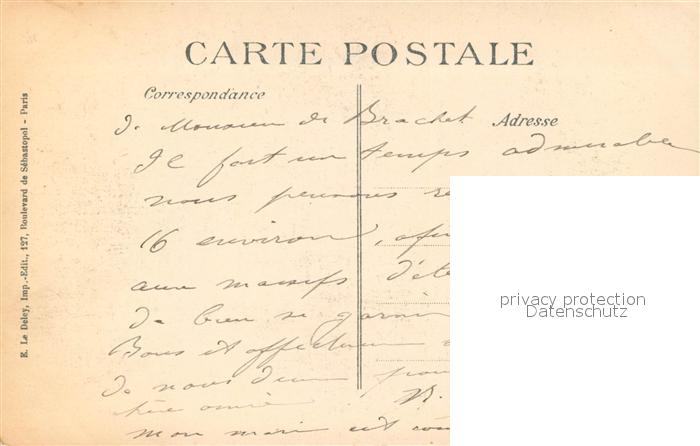 CARTE POSTALE
Correspondance
Adresse
de Monsieur de Brachet
Il fait un temps admirable
nous pensons
16 environ,
aux massifs d'été
de bien se garnir
Bons et affectueux
de nous deux pour
chère amie
mon mari est
E. Le Deley, Imp.-Edit., 127, Boulevard de Sébastopol - Paris
privacy protection
Datenschutz